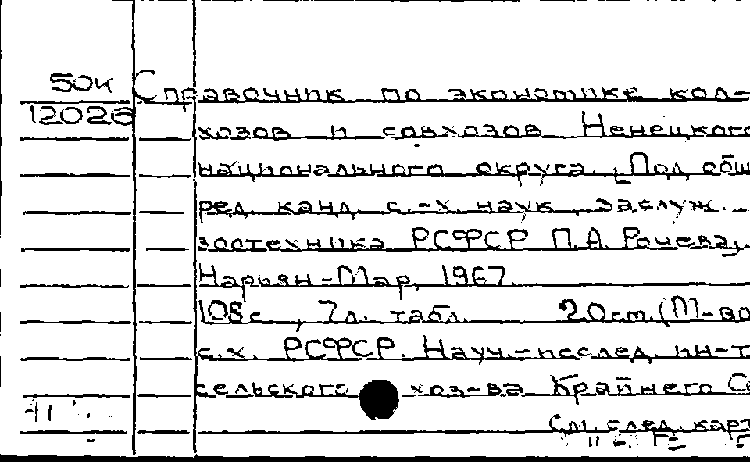 50к Справочник по экономике кол-
12026
хозов и совхозов Ненецкого
национального округа. Под общ
ред. канд. с.-х. наук, заслуж.
зоотехника РСФСР П.А. Рочева.
Нарьян-Мар, 1967.
108с., 7л. табл. 20см. (М-во
с.х. РСФСР. Науч.-исслед. ин-т
сельского хоз-ва Крайнего Се
См. след. карт